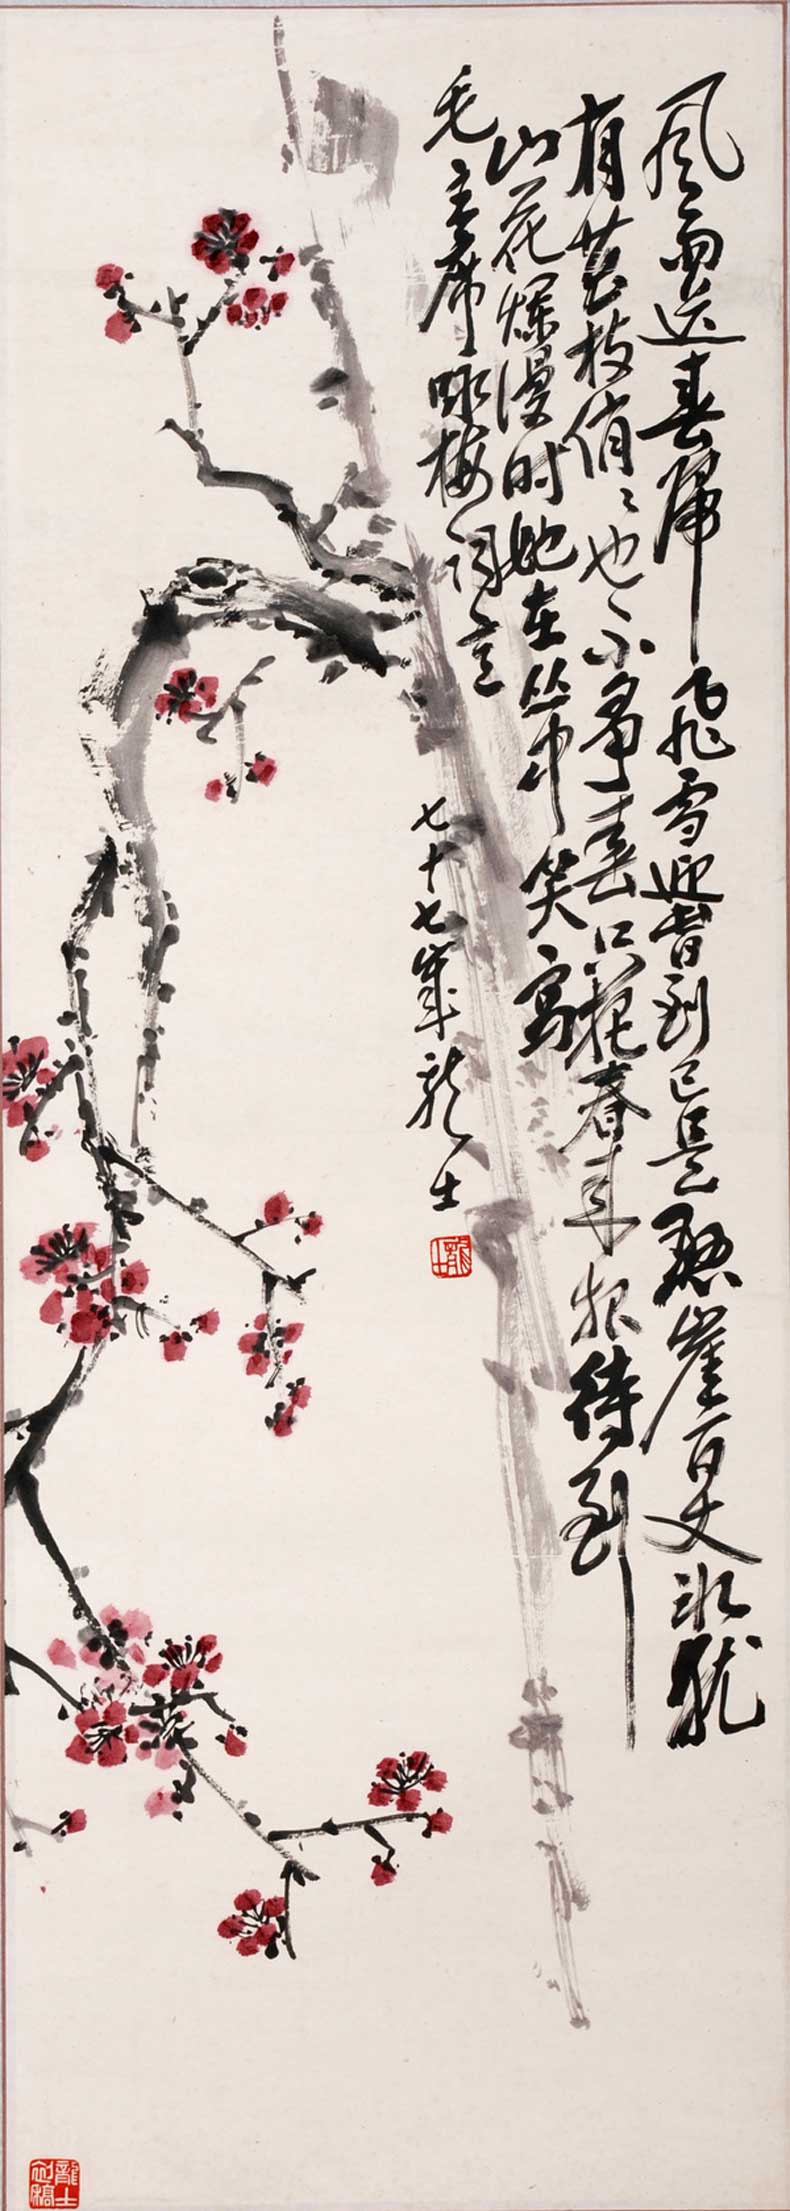 風雨送春歸飛雪迎春到已是懸崖百丈冰猶
有花枝俏〻也不爭春只把春來報待到
山花爛漫时她在丛中笑寫
毛主席咏梅詞意
七十七歲龍士
龍士